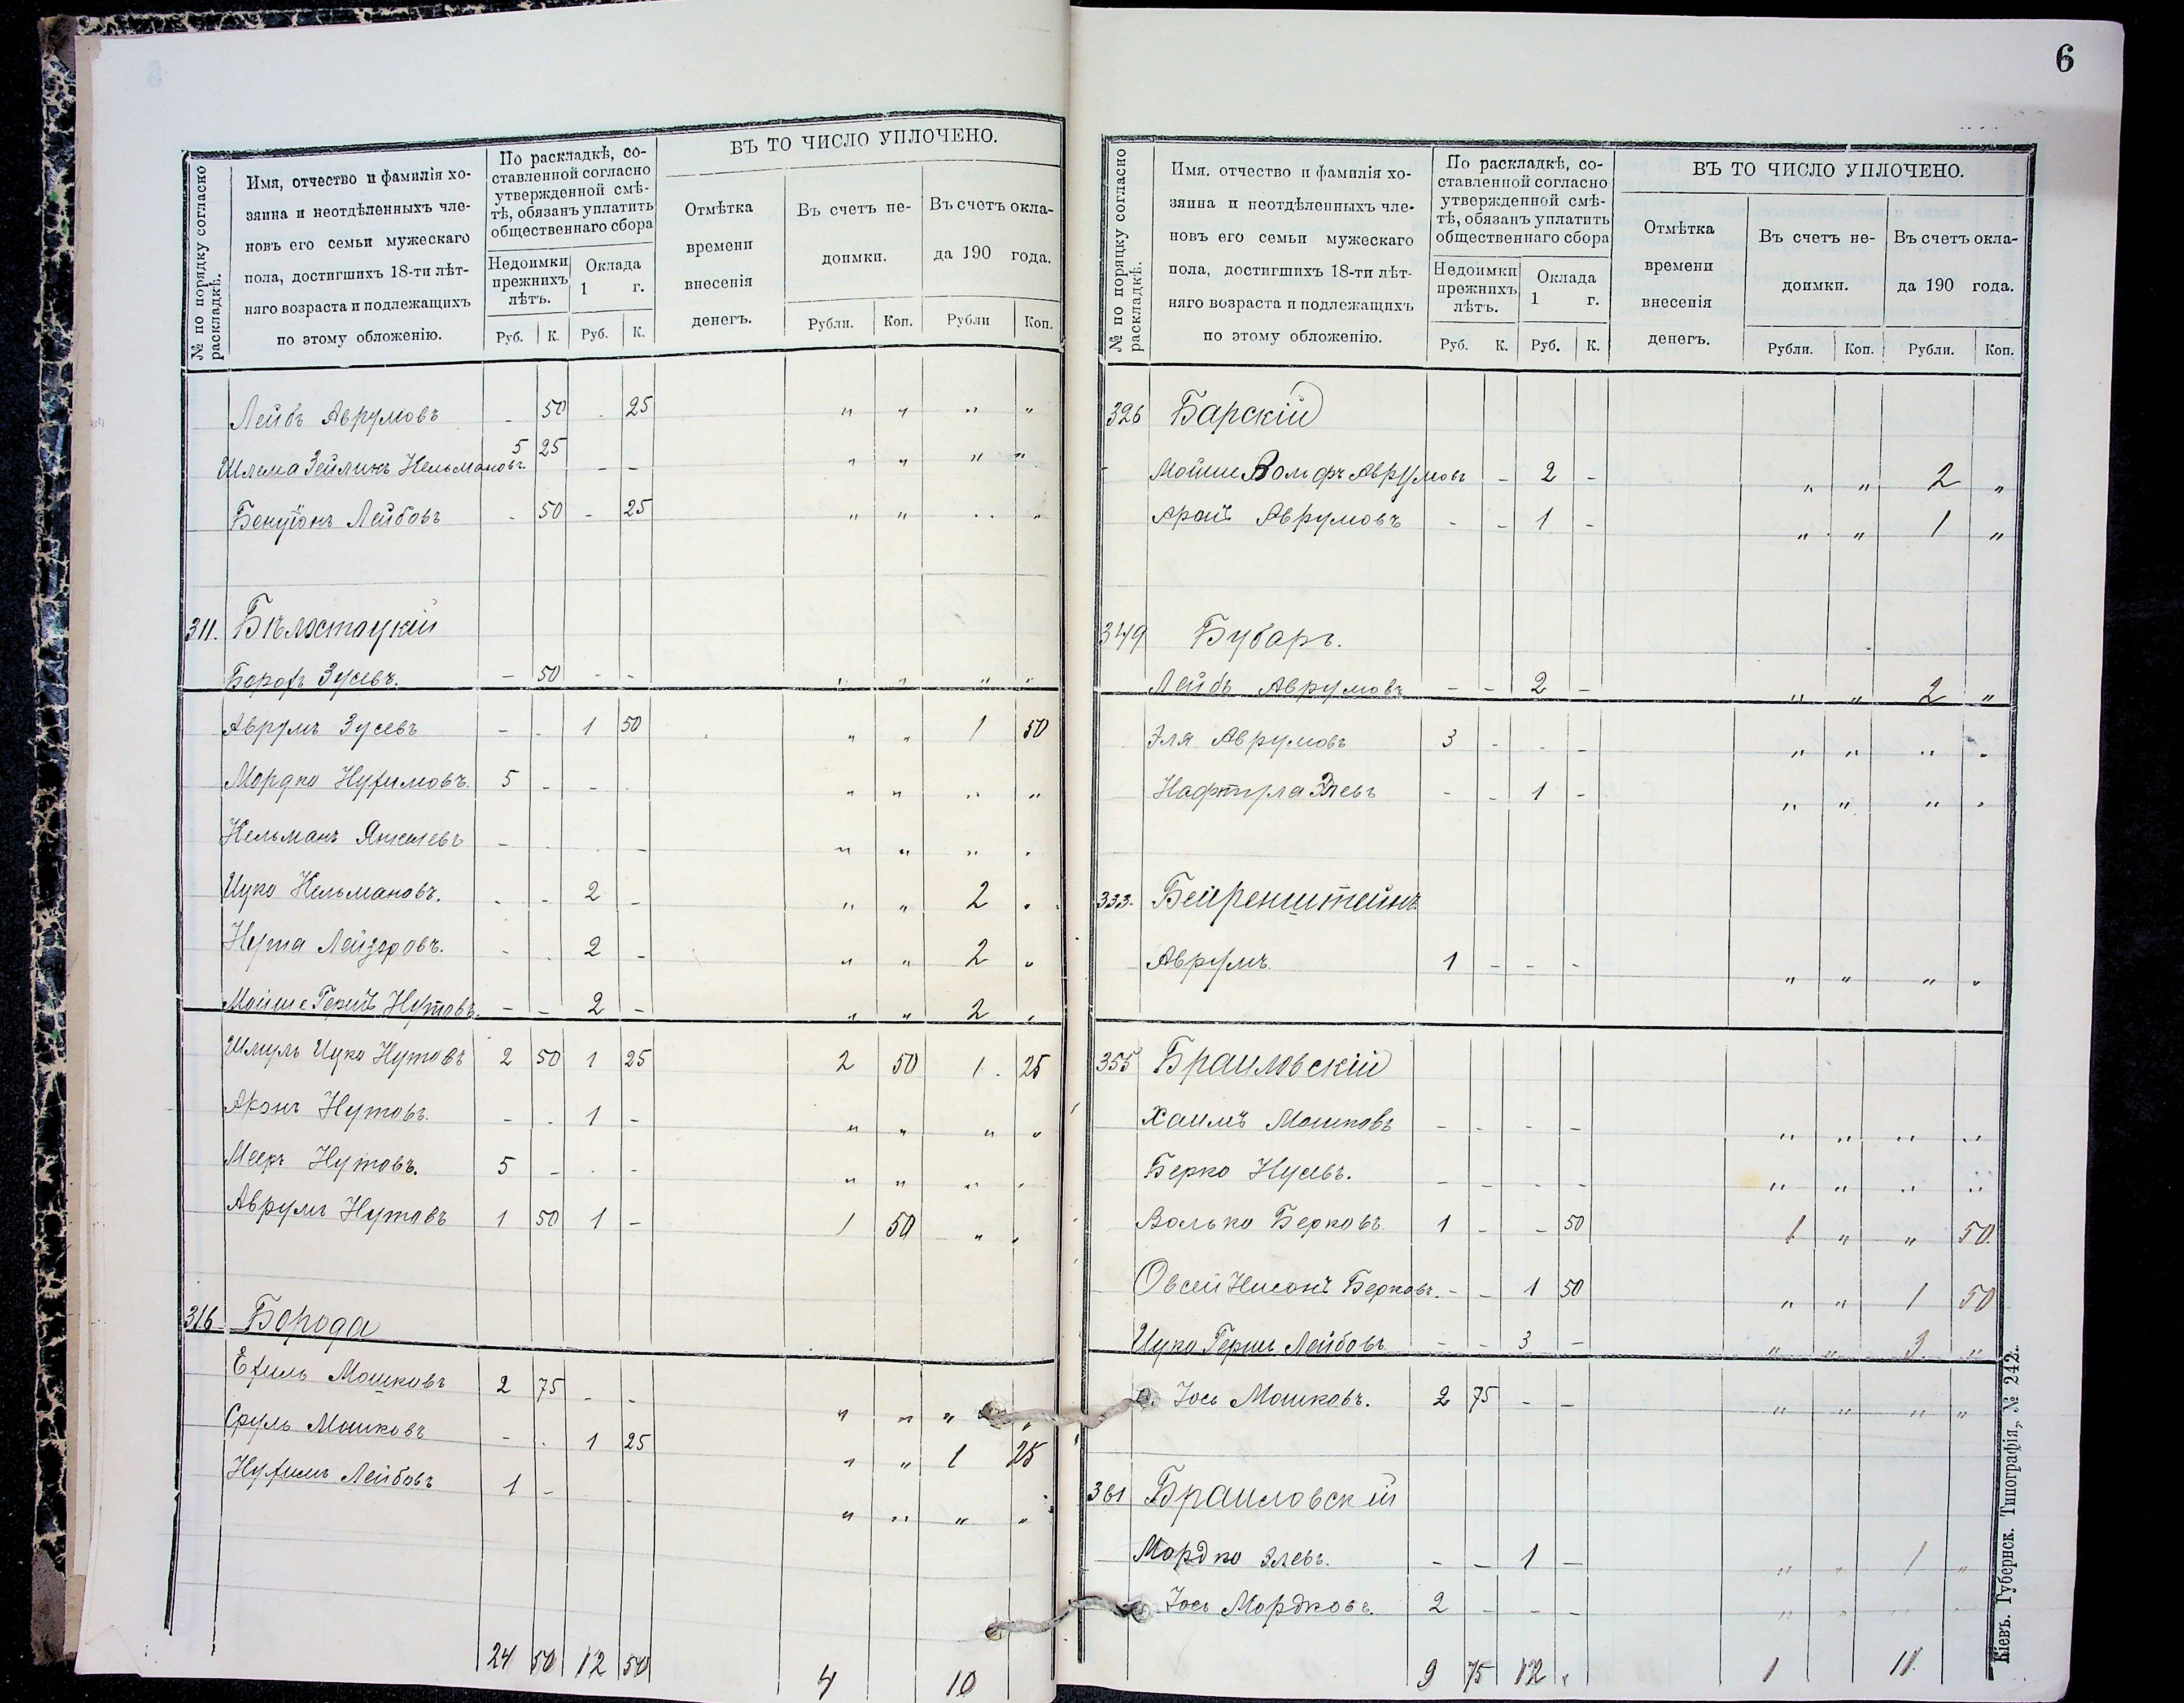 6
№ по порядку согласно раскладкѣ.
Имя, отчество и фамилія хо-
зяина и неотдѣленныхъ чле-
новъ его семьи мужескаго
пола, достигшихъ 18-ти лѣт-
няго возраста и подлежащихъ
по этому обложенію.
По раскладкѣ, со-
ставленной согласно
утвержденной смѣ-
тѣ, обязанъ уплатить
общественнаго сбора
Недоимки прежнихъ лѣтъ.
Оклада 1 г.
Руб. К. Руб. К.
ВЪ ТО ЧИСЛО УПЛОЧЕНО.
Отмѣтка времени внесенія денегъ.
Въ счетъ не-
доимки.
Въ счетъ окла-
да 190 года.
Рубли. Коп. Рубли Коп.
Лейбъ Аврумовъ - 50 - 25 " " " "
Шлема Зейликъ Кельмановъ 5 25 - - " " " "
Бенціонъ Лейбовъ - 50 - 25 " " " "
311. Бѣлостоцкій
Борохъ Зусевъ. - 50 - - " " " "
Аврумъ Зусевъ - - 1 50 " " 1 50
Мордко Нухимовъ. 5 - - - " " " "
Кельманъ Янкелевъ - - - - " " " "
Ицко Кельмановъ. - - 2 - " " 2 "
Нута Лейзеровъ. - - 2 - " " 2 "
Мойше Гершъ Нутовъ. - - 2 - " " 2 "
Шмуль Ицко Нутовъ 2 50 1 25 2 50 1 25
Аронъ Нутовъ. - - 1 - " " " "
Мееръ Нутовъ. 5 - - - " " " "
Аврумъ Нутовъ 1 50 1 - 1 50 " "
316 Борода
Ехиль Мошковъ 2 75 - - " " " "
Сруль Мошковъ - - 1 25 " " 1 25
Нухимъ Лейбовъ 1 - - " " " "
24 50 12 50 4 10
№ по порядку согласно раскладкѣ.
Имя, отчество и фамилія хо-
зяина и неотдѣленныхъ чле-
новъ его семьи мужескаго
пола, достигшихъ 18-ти лѣт-
няго возраста и подлежащихъ
по этому обложенію.
По раскладкѣ, со-
ставленной согласно
утвержденной смѣ-
тѣ, обязанъ уплатить
общественнаго сбора
Недоимки прежнихъ лѣтъ.
Оклада 1 г.
Руб. К. Руб. К.
ВЪ ТО ЧИСЛО УПЛОЧЕНО.
Отмѣтка времени внесенія денегъ.
Въ счетъ не-
доимки.
Въ счетъ окла-
да 190 года.
Рубли. Коп. Рубли. Коп.
326 Барскій
Мойше Вольфъ Аврумовъ - 2 - " " 2 "
Аврумовъ - - 1 - " " 1 "
349 Бубаръ.
Лейбъ Аврумовъ - - 2 - " " 2 "
Эля Аврумовъ 3 - - - " " " "
Нафтула Элевъ - - 1 - " " " "
333. Бейренштейнъ.
Аврумъ 1 - - - " " " "
355 Браиловскій
Хаимъ Мошковъ - - - - " " " "
Берко Нусевъ. - - - - " " " "
Волько Берковъ. 1 - - 50 1 " " 50
Овсей Нисонъ Берковъ. - - 1 50 " " 1 50
Ицко Гершъ Лейбовъ - - 3 - " " 3 "
Іось Мошковъ. 2 75 - - " " " "
361 Браиловскій
Мордко Элевъ. - - 1 - " " 1 "
Іось Мордковъ. 2 - - - " " " "
9 75 12 " 1 11
Кіевъ. Губернск. Типографія, № 242.